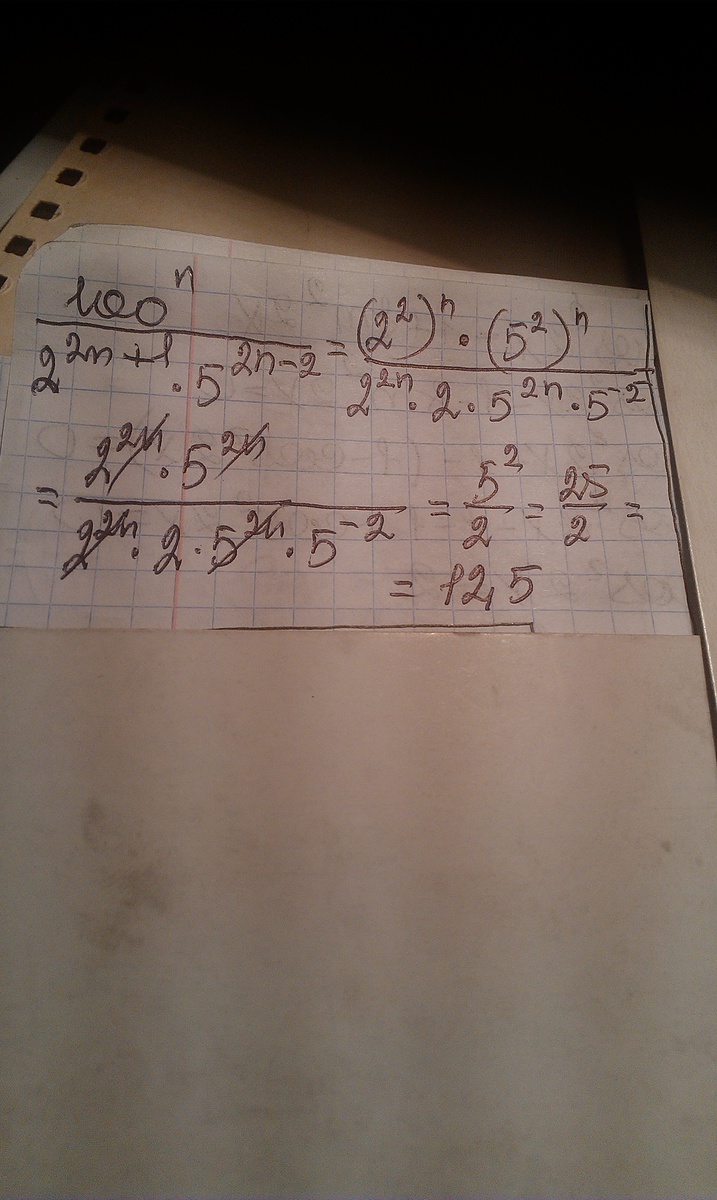 100^n / (2^(2n+1) · 5^(2n-2)) = ((2^2)^n · (5^2)^n) / (2^(2n) · 2 · 5^(2n) · 5^(-2))
= (2^(2n) · 5^(2n)) / (2^(2n) · 2 · 5^(2n) · 5^(-2)) = 5^2 / 2 = 25 / 2 =
= 12,5